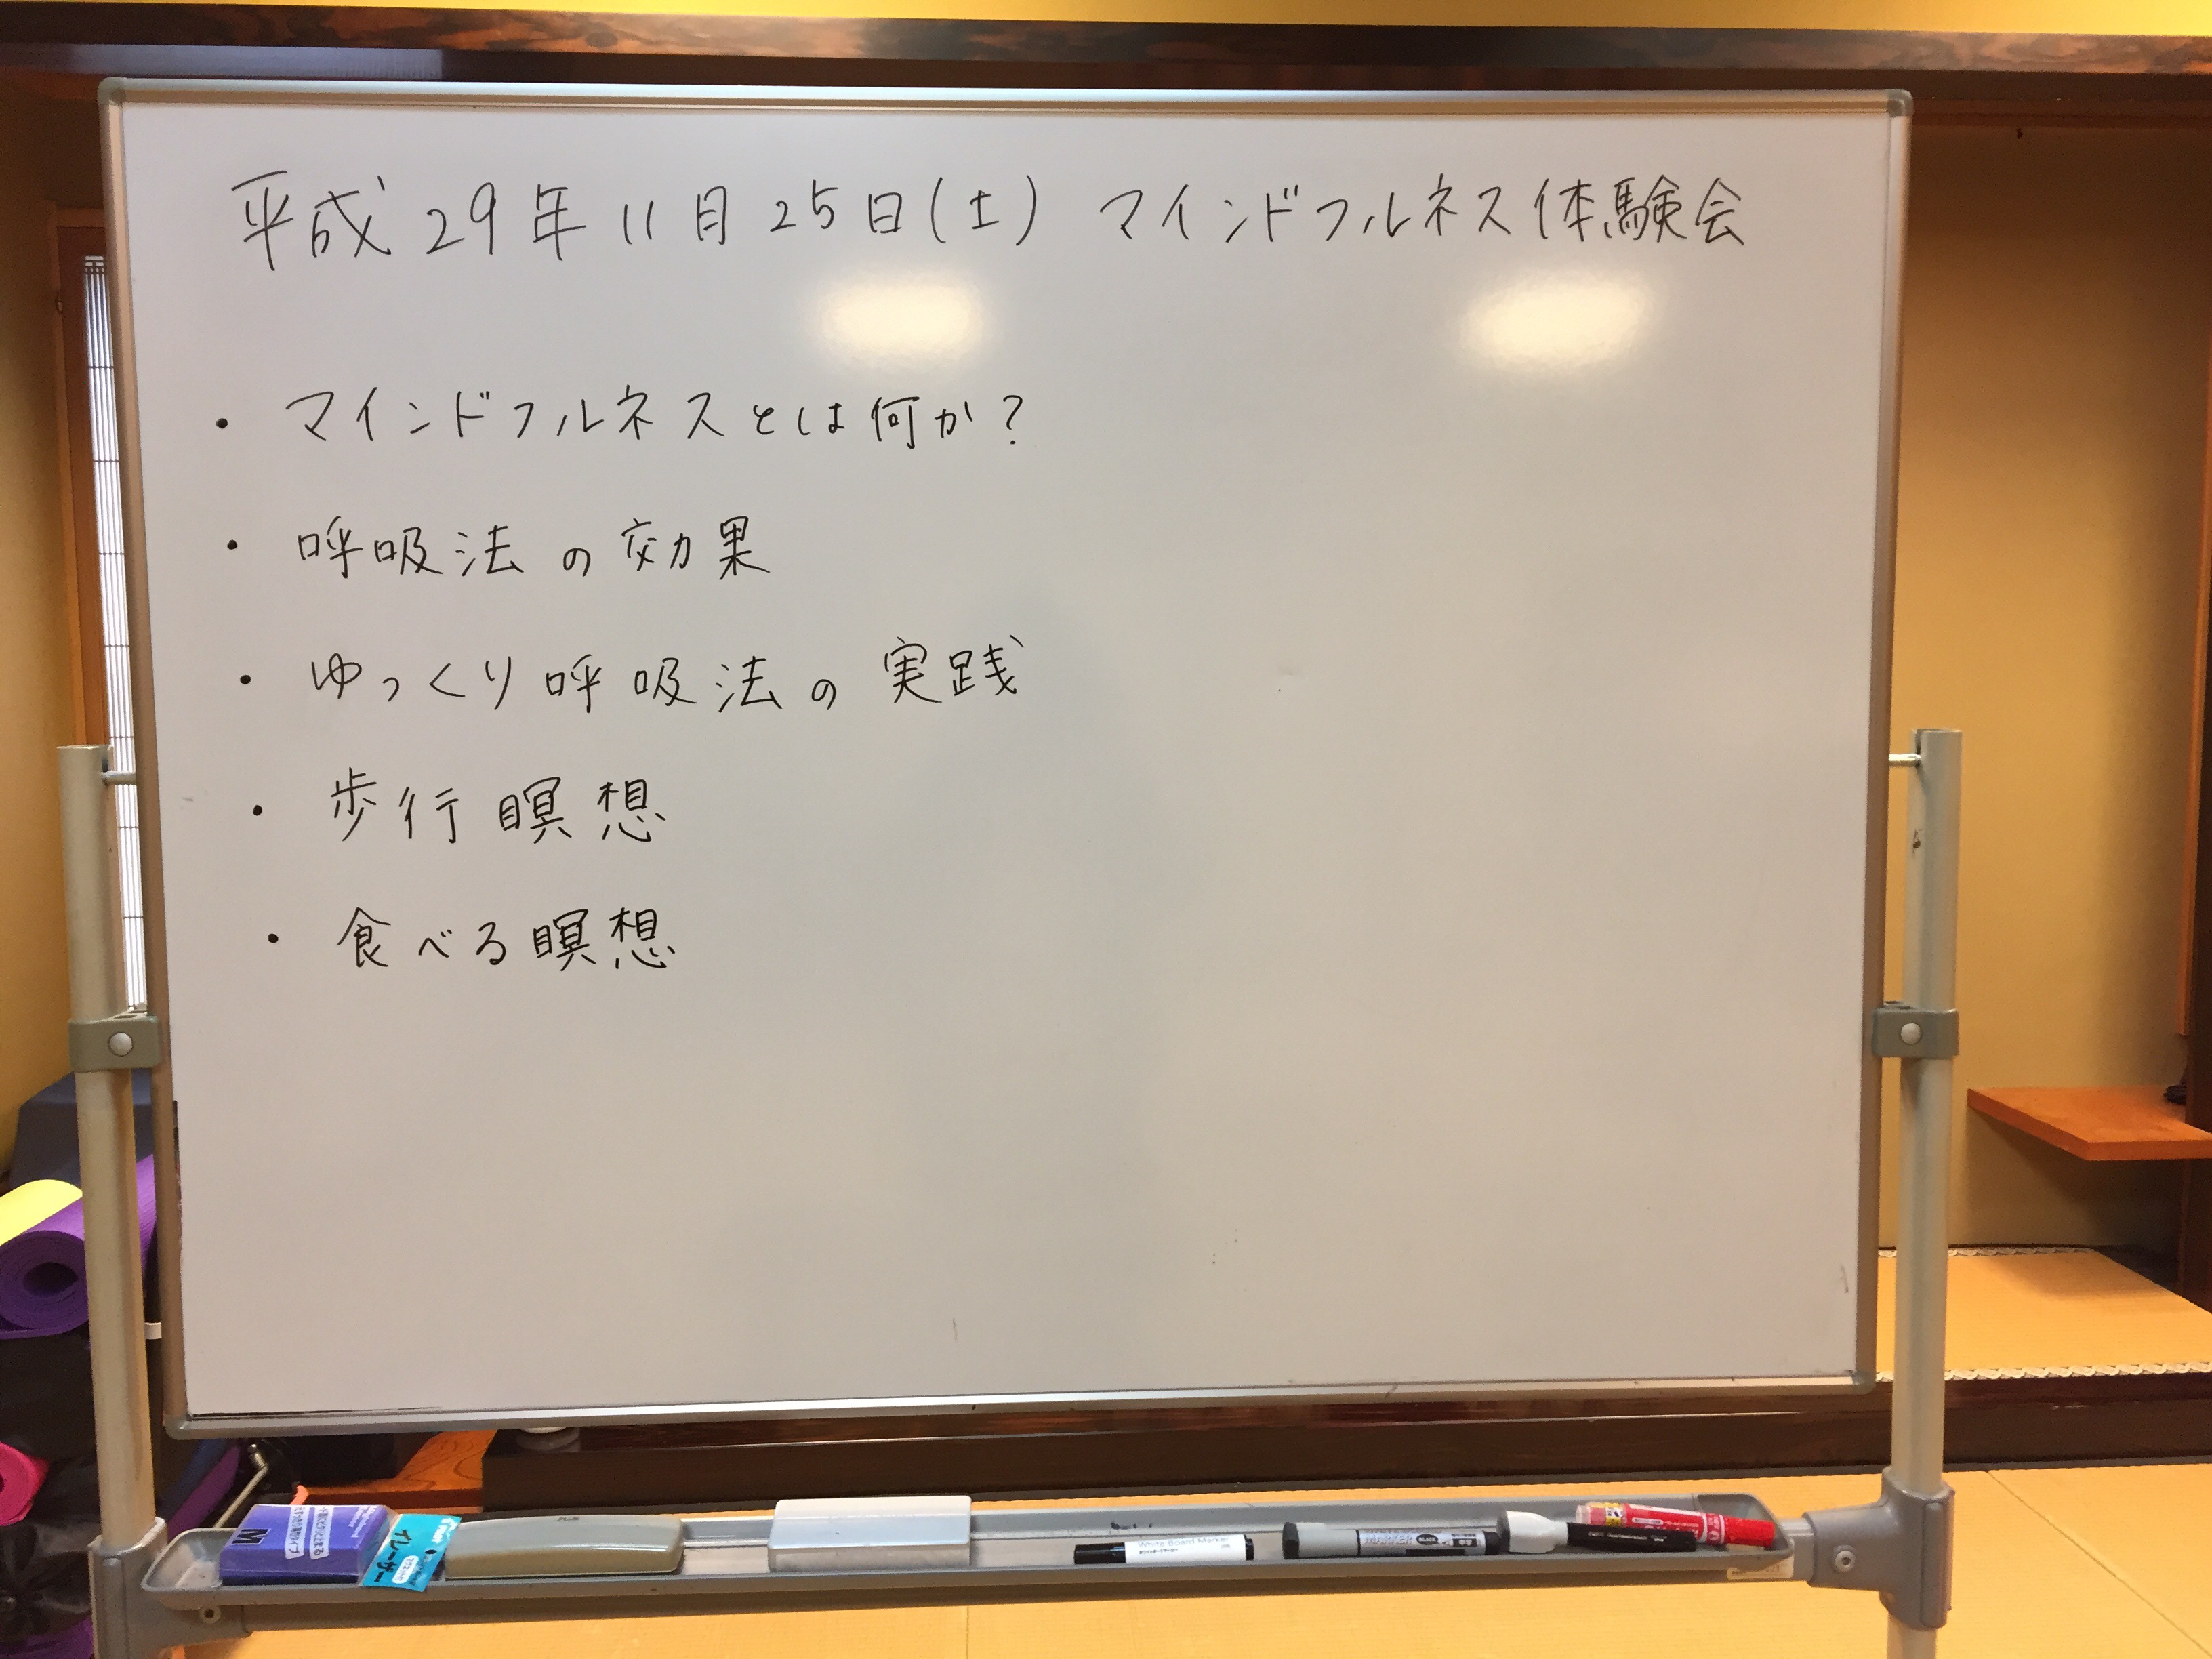 平成29年11月25日(土) マインドフルネス体験会
・マインドフルネスとは何か?
・呼吸法の効果
・ゆっくり呼吸法の実践
・歩行瞑想
・食べる瞑想
M
イレーザー
White Board Marker
MARKER